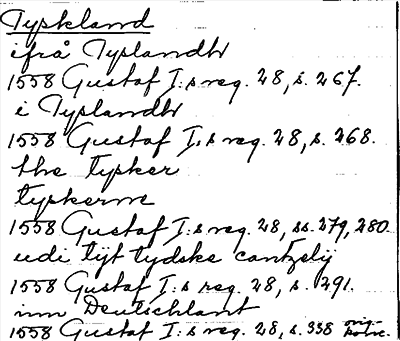 Tyskland
ifrå Tyslandh
1558 Gustaf I:s reg. 28, s. 267.
i Tyslandh
1558 Gustaf I:s reg. 28, s. 268.
the tysker
tyskerne
1558 Gustaf I:s reg. 28, ss. 279, 280
udi tyt tydske cantzelij
1558 Gustaf I:s reg. 28, s. 291.
inn Deutschlant
1558 Gustaf I:s reg. 28, s. 338